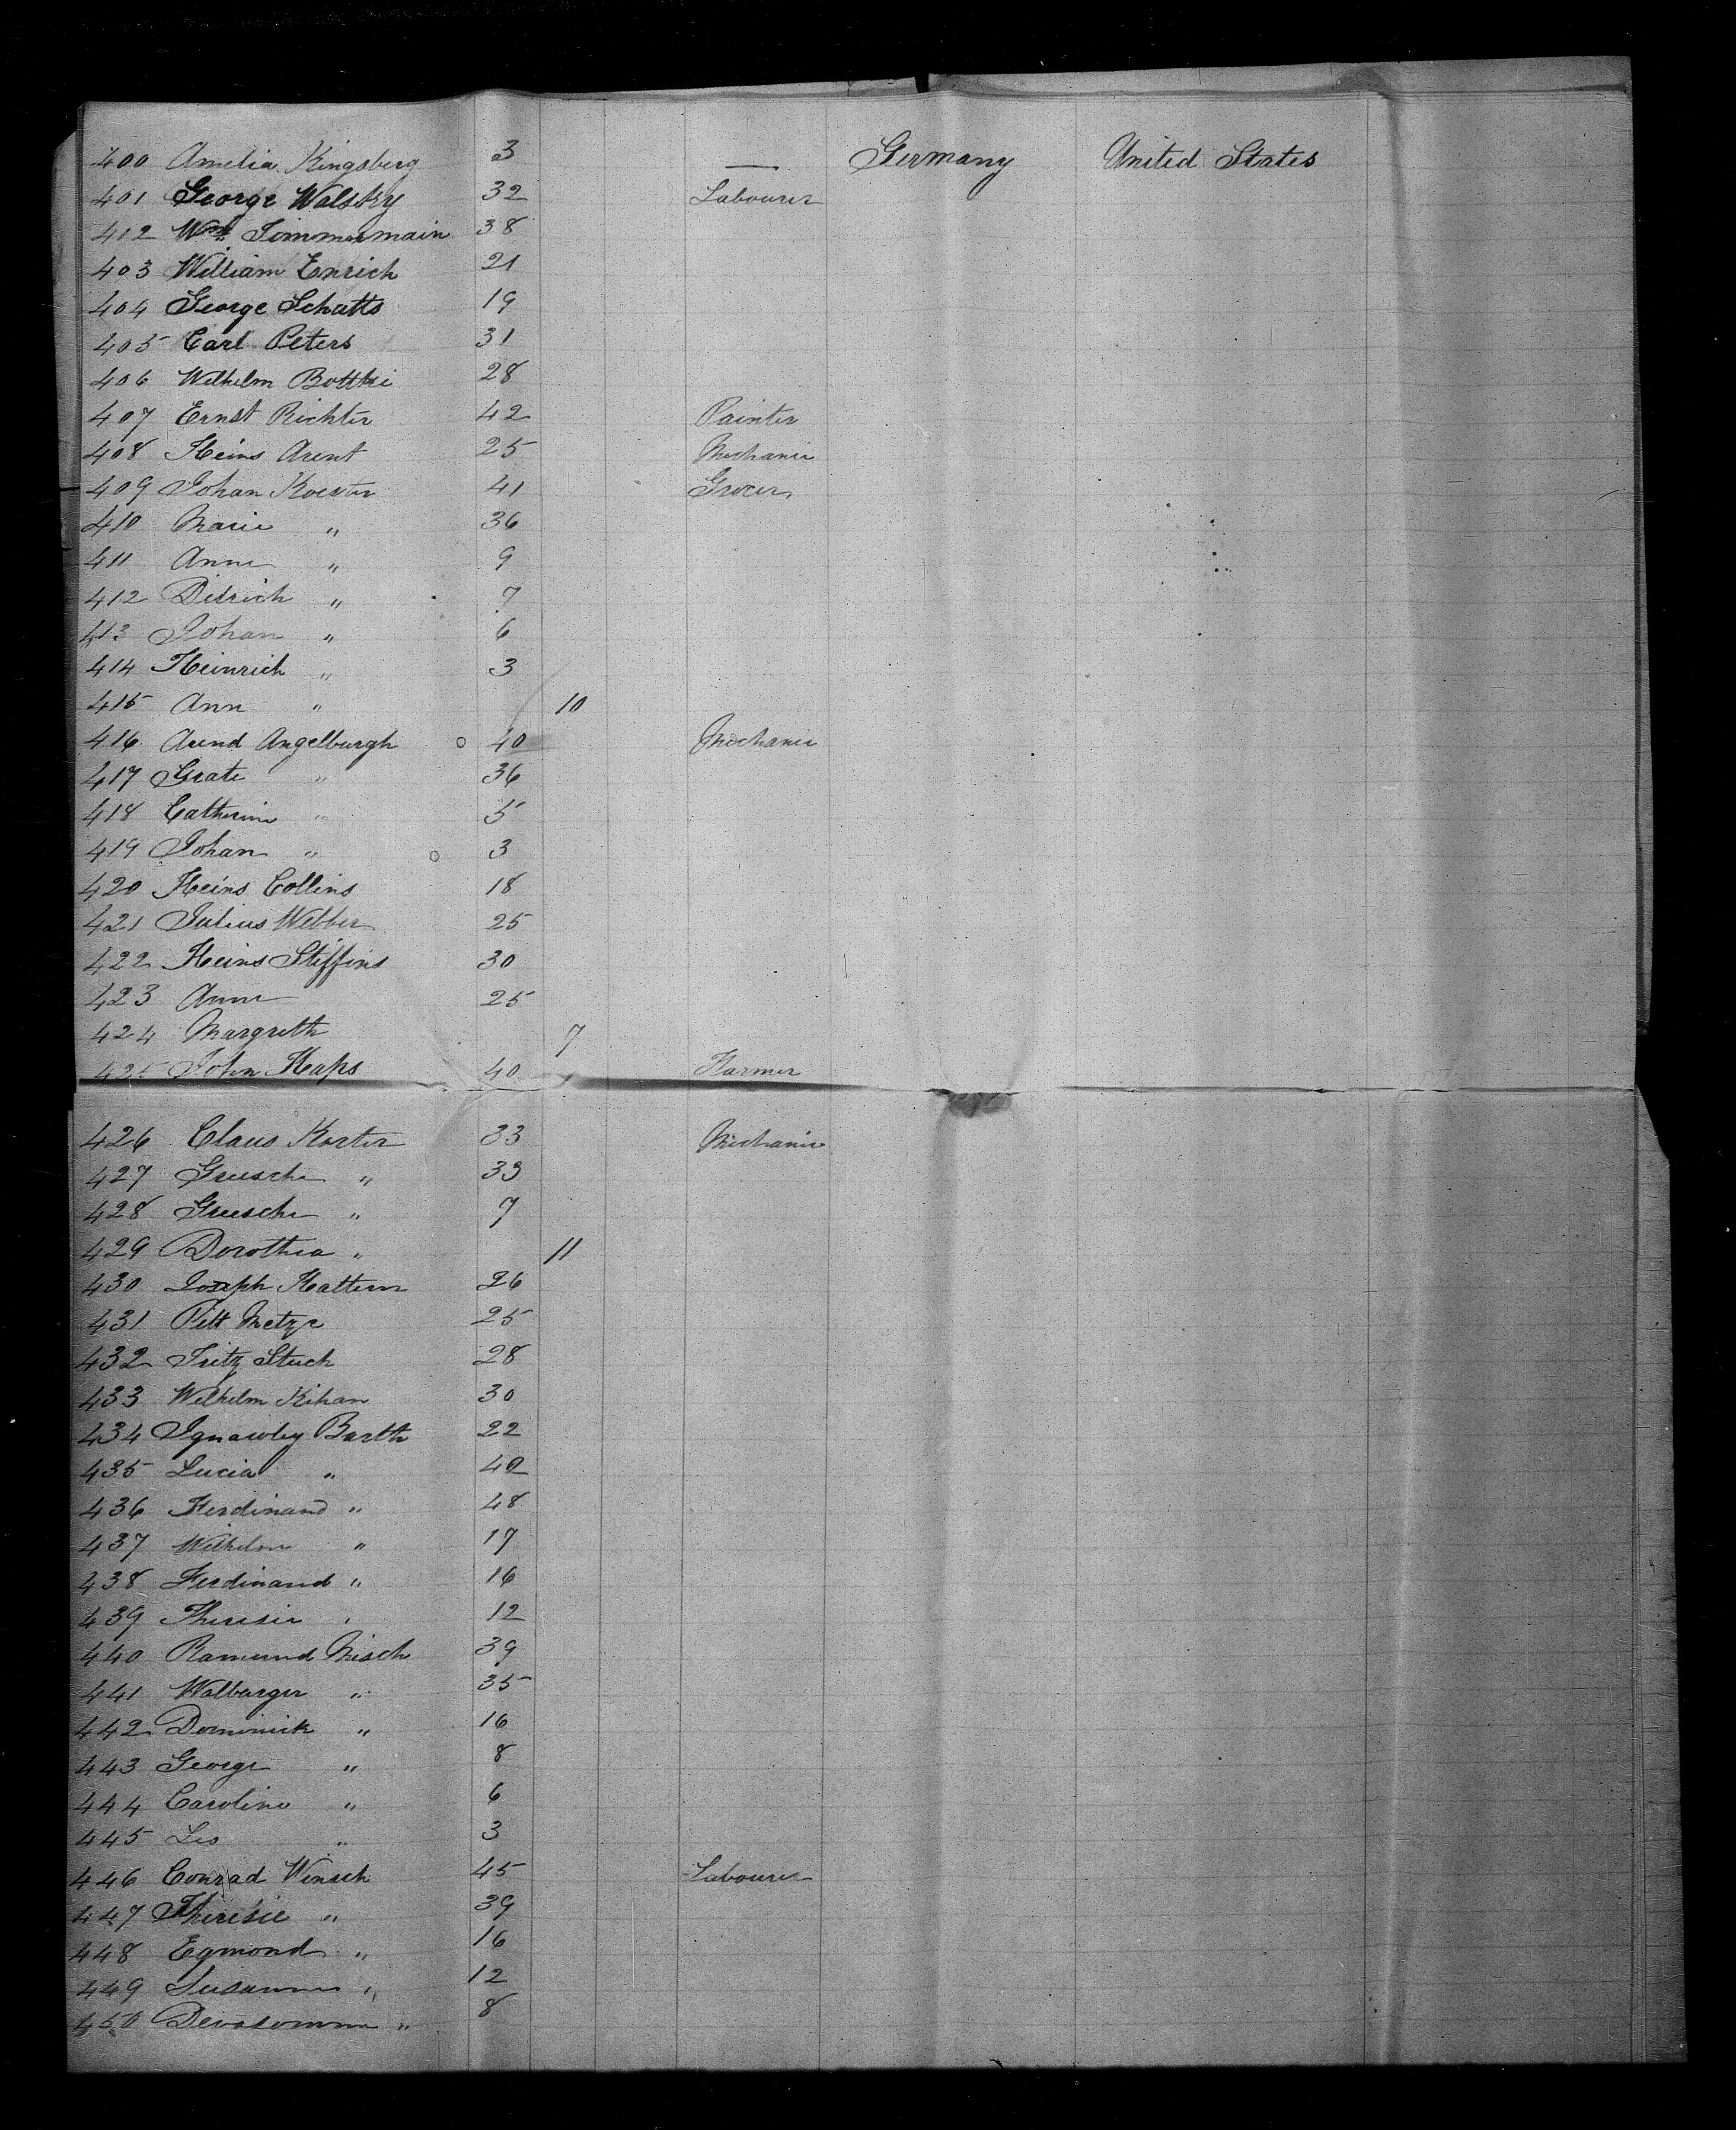 400 Amelia Kingsberg 3 — Germany United States
401 George Walsky 32 Labourer
412 Wm Timmermain 38
403 William Enrich 21
404 George Schatts 19
405 Carl Peters 31
406 Wilhelm Bottke 28
407 Ernst Richter 42 Painter
408 Heins Arent 25 Mechanic
409 Johan Koester 41 Grocer
410 Marie " 36
411 Anne " 9
412 Ditrich " 7
413 Johan " 6
414 Heinrich " 3
415 Ann " 10
416 Arend Angelburgh 40 Mechanic
417 Grate " 36
418 Catherine " 5
419 Johan " 3
420 Heins Collins 18
421 Julius Webber 25
422 Heins Stiffins 30
423 Anne 25
424 Margreth 7
425 John Haps 40 Farmer
426 Claus Korter 33 Mechanic
427 Gresche " 33
428 Gresche " 7
429 Dorothea " 11
430 Joseph Hattern 26
431 Pitt Metze 25
432 Fritz Stuck 28
433 Wilhelm Kihan 30
434 Barth 22
435 Lucia " 42
436 Ferdinand " 48
437 Wilhelm " 17
438 Ferdinand " 16
439 Theresie " 12
440 Ramund Misch 39
441 Walburger " 35
442 Dominick " 16
443 George " 8
444 Caroline " 6
445 Leo " 3
446 Conrad Winsch 45 Labourer
447 Theresie " 39
448 Egmond " 16
449 Susanne " 12
450 " 8